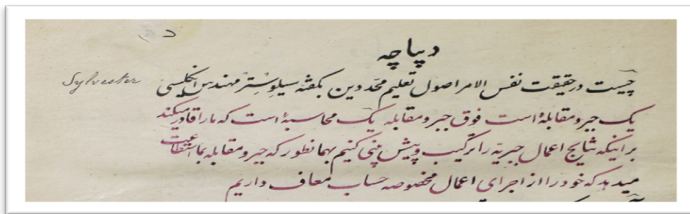 دیباچه
Sylvester
چیست در حقیقت نفس الامر اصول تعلیم محددین بگفته سیلوستر مهندس انگلیسی
یک جبر و مقابلهٔ است فوق جبر و مقابله یک محاسبهٔ است که ما را قادر میکند
بر اینکه نتایج اعمال جبریه را ترکیب و پیش بینی کنیم بهمانطور که جبر و مقابله بما استطاعت
میدهد که خود را از اجرای اعمال مخصوصه حساب معاف داریم